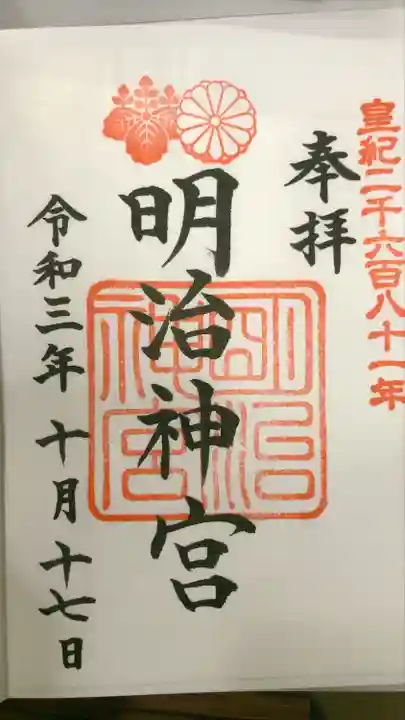 皇紀二千六百八十一年
奉拝
明治神宮
明治神宮
令和三年十月十七日